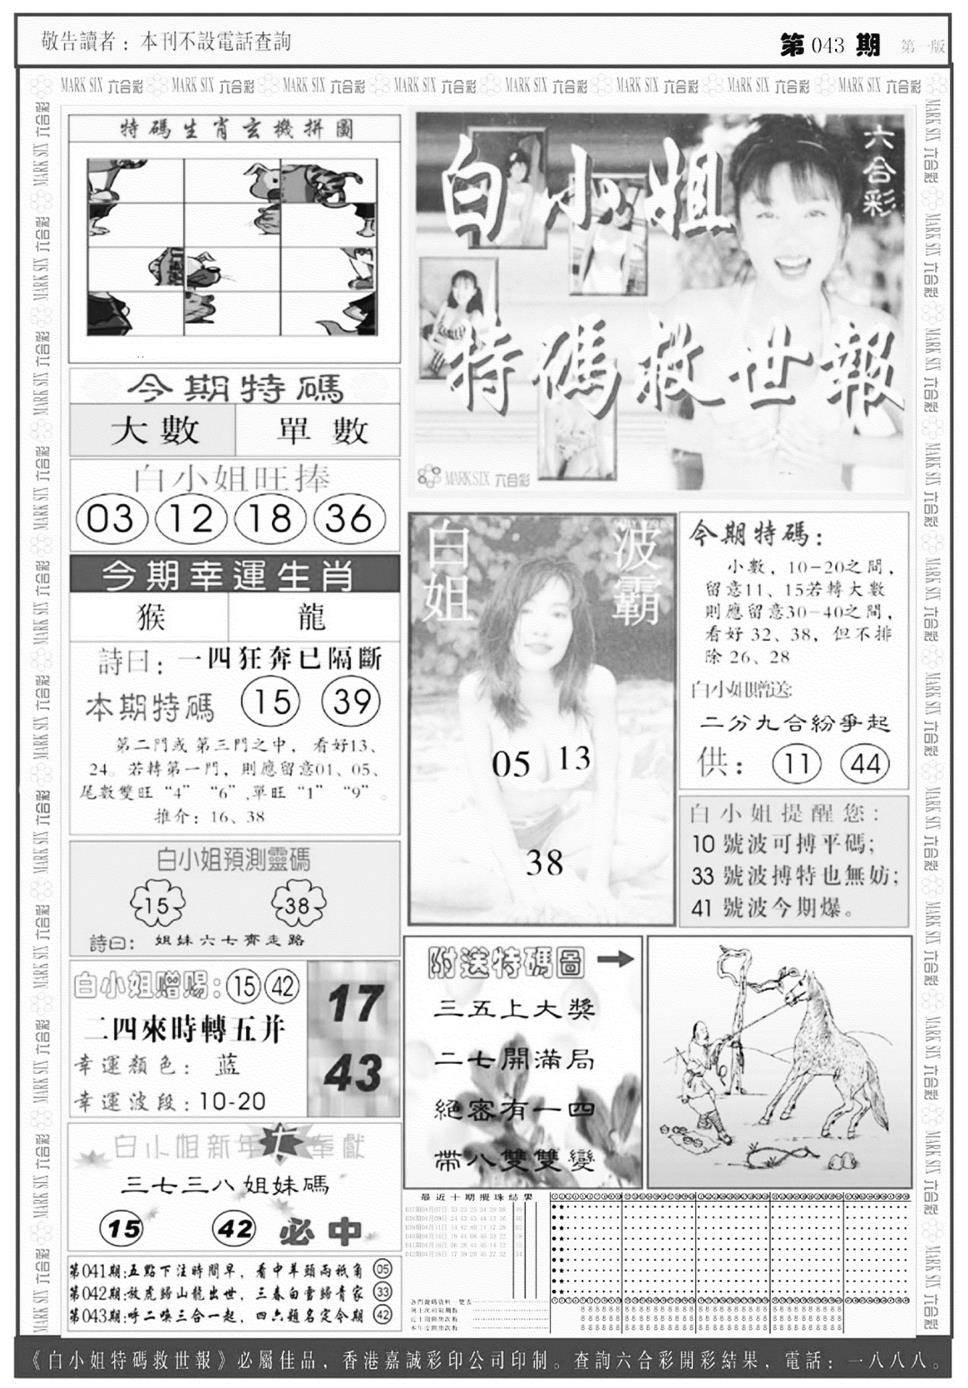 敬告讀者：本刊不設電話查詢
第 043 期 第一版
MARK SIX 六合彩 MARK SIX 六合彩 MARK SIX 六合彩 MARK SIX 六合彩 MARK SIX 六合彩 MARK SIX 六合彩 MARK SIX 六合彩 MARK SIX 六合彩
特碼生肖玄機拼圖
今期特碼
大數 單數
白小姐旺捧
03 12 18 36
今期幸運生肖
猴 龍
詩曰：一四狂奔已隔斷
本期特碼 15 39
第二門或第三門之中，看好13、
24。若轉第一門，則應留意01、05、
尾數雙旺“4”“6”,單旺“1”“9”。
推介：16、38
白小姐預測靈碼
15 38
詩曰：姐妹六七齊走路
白小姐贈賜：15 42
二四來時轉五并
幸運顏色：蓝
幸運波段：10-20
17
43
白小姐新年 奉獻
三七三八姐妹碼
15 42 必中
第041期:五點下注時間早，看中羊頭兩祇角 05
第042期:放虎歸山龍出世，三春白當歸青家 33
第043期:呼二喚三合一起，四六題名定今期 42
白小姐
六合彩
特碼救世報
MARK SIX 六合彩
白姐
波霸
05 13
38
今期特碼：
小數，10-20之間，
留意11、15若轉大數
則應留意30-40之間，
看好 32、38，但不排
除 26、28
白小姐贈送:
二分九合紛爭起
供： 11 44
白小姐提醒您：
10 號波可搏平碼；
33 號波搏特也無妨；
41 號波今期爆。
附送特碼圖
三五上大獎
二七開滿局
絕密有一四
帶八雙雙變
最近十期攪珠結果
《白小姐特碼救世報》必屬佳品，香港嘉誠彩印公司印制。查詢六合彩開彩結果，電話：一八八八。